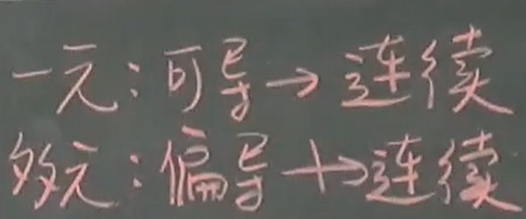 一元:可导→连续
多元:偏导↛连续